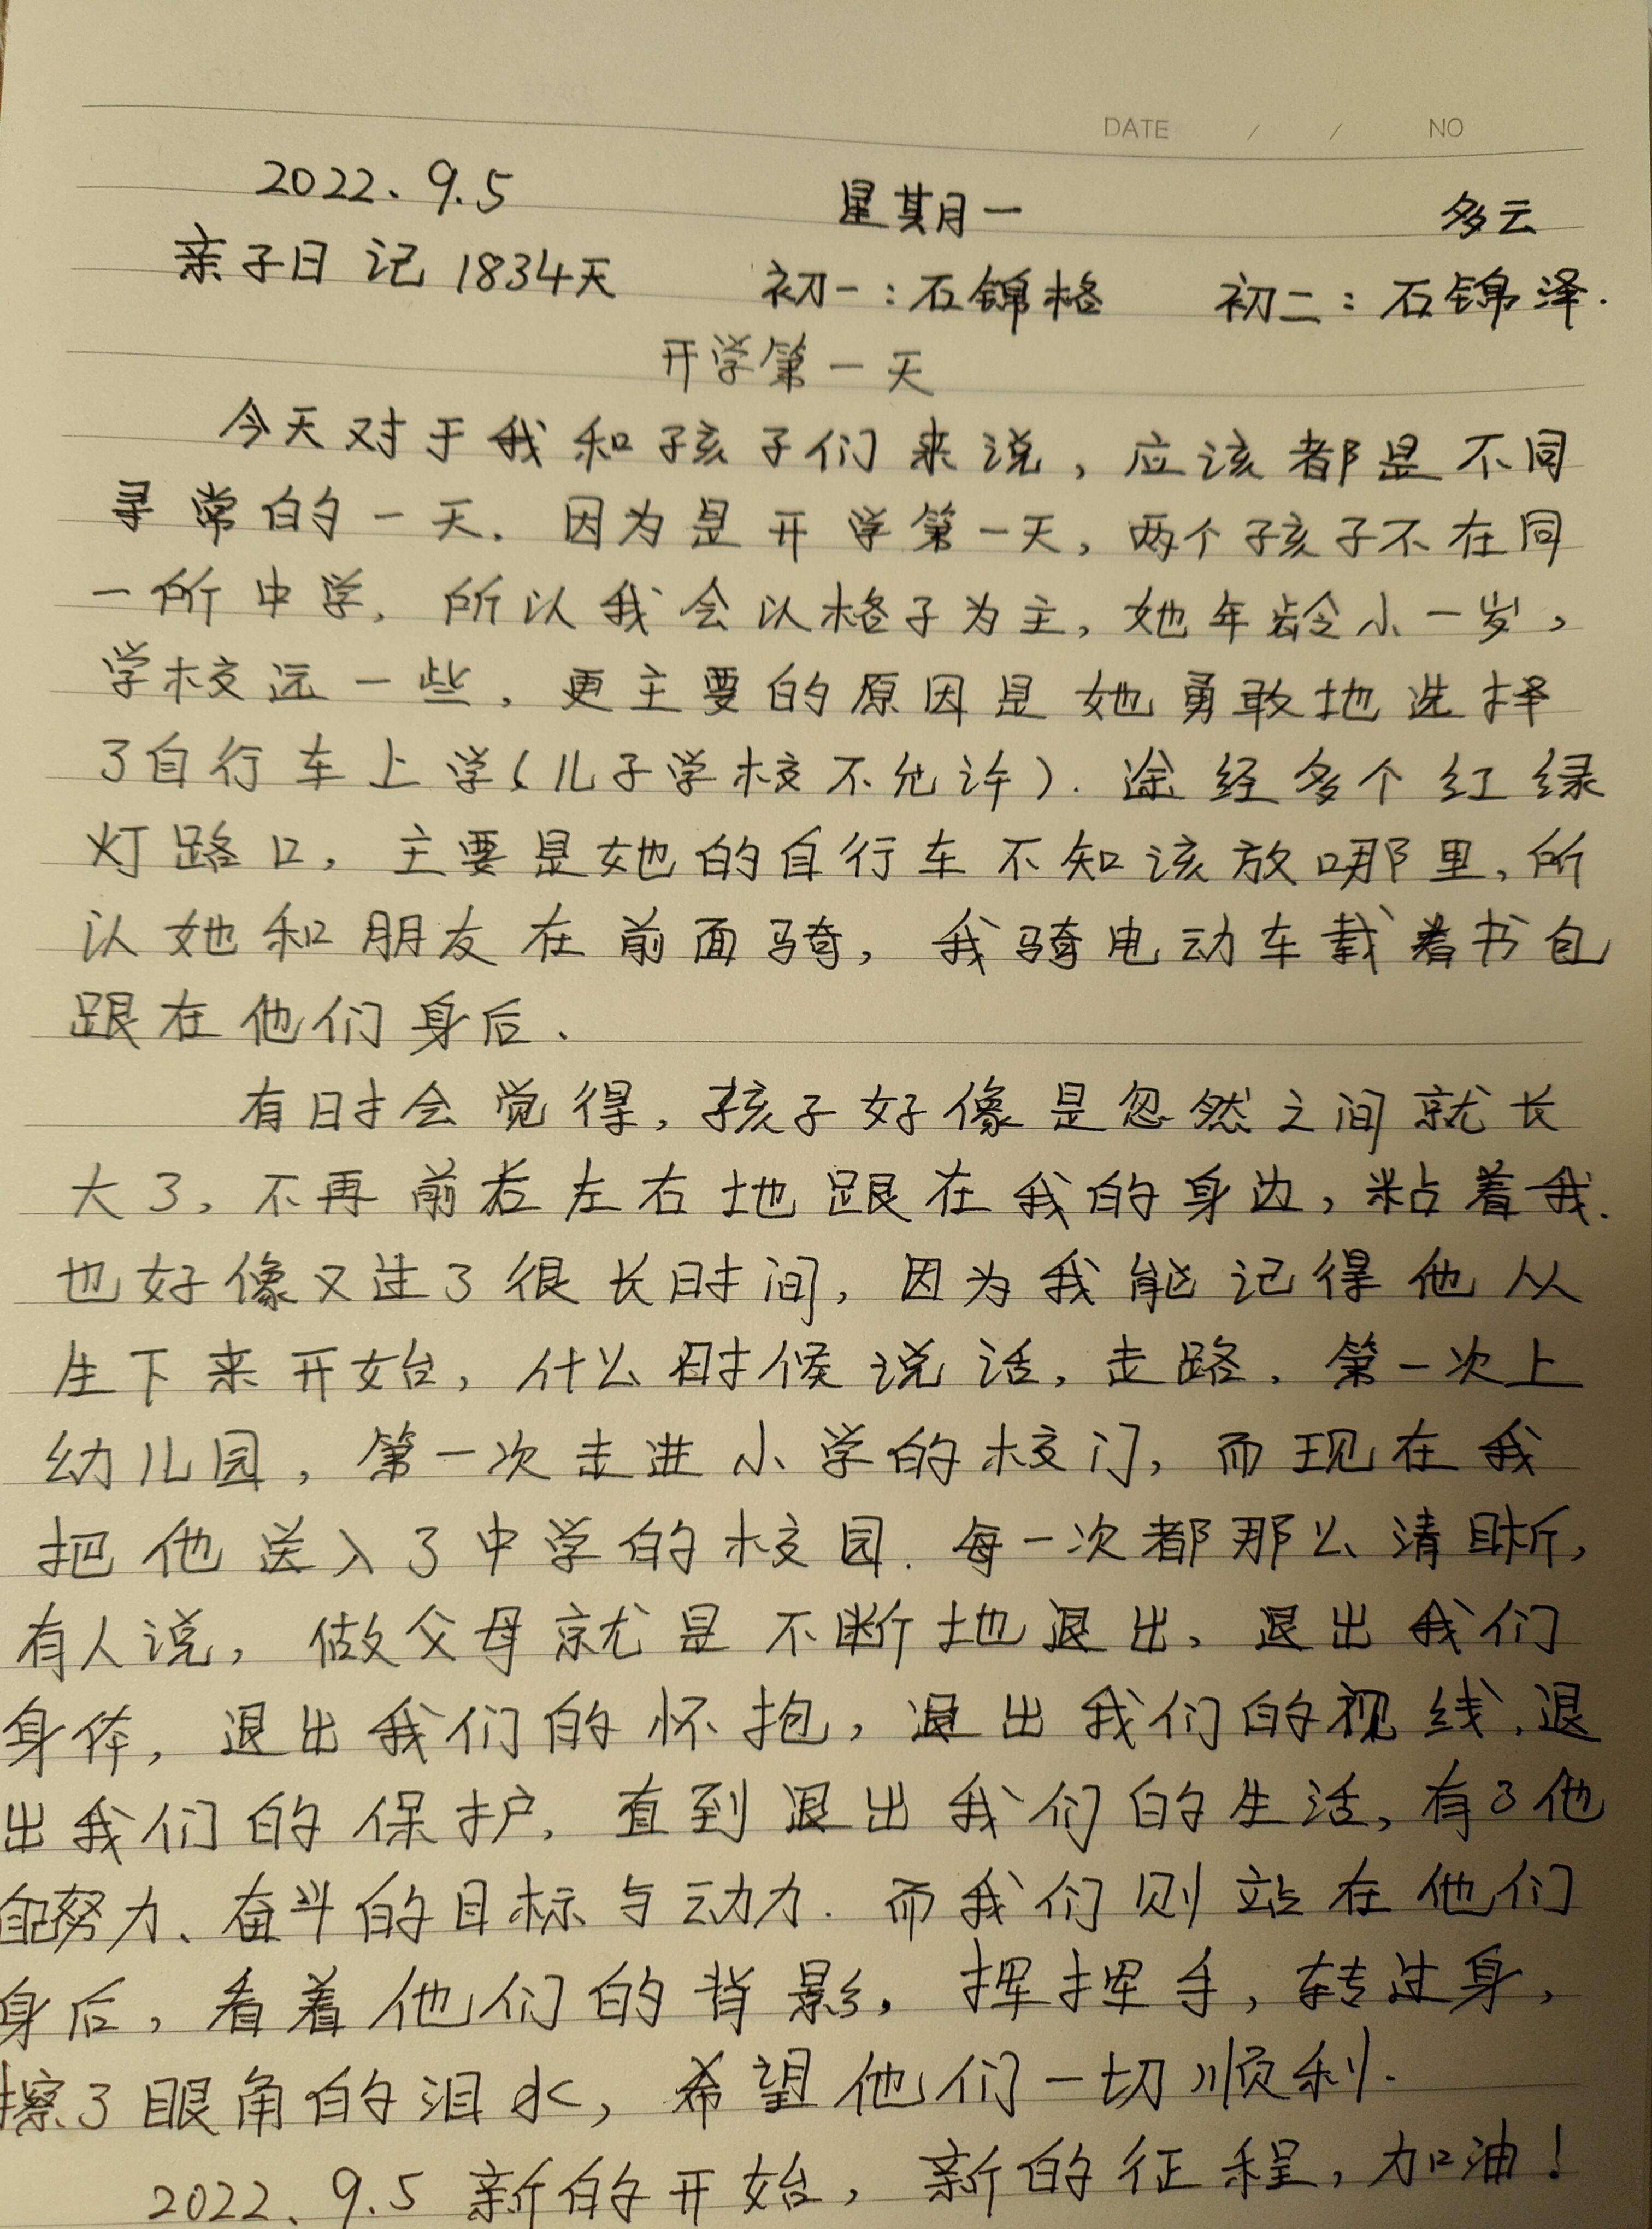 DATE / / NO
2022、9.5 星期一 多云
亲子日记 1834天 初一：石锦格 初二：石锦泽.
开学第一天
今天对于我和孩子们来说，应该都是不同
寻常的一天. 因为是开学第一天，两个孩子不在同
一所中学. 所以我会以格子为主，她年龄小一岁，
学校远一些，更主要的原因是她勇敢地选择
了自行车上学(儿子学校不允许). 途经多个红绿
灯路口，主要是她的自行车不知该放哪里，所
以她和朋友在前面骑，我骑电动车载着书包
跟在他们身后.
有时会觉得，孩子好像是忽然之间就长
大了，不再前后左右地跟在我的身边，粘着我.
也好像又过了很长时间，因为我能记得他从
生下来开始，什么时候说话，走路，第一次上
幼儿园，第一次走进小学的校门，而现在我
把他送入了中学的校园. 每一次都那么清晰，
有人说，做父母就是不断地退出，退出我们
身体，退出我们的怀抱，退出我们的视线，退
出我们的保护，直到退出我们的生活，有了他
自己努力、奋斗的目标与动力. 而我们则站在他们
身后，看着他们的背影，挥挥手，转过身，
擦了眼角的泪水，希望他们一切顺利.
2022、9.5 新的开始，新的征程，加油！